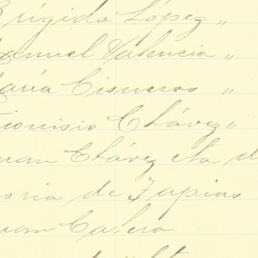 Brígido López "
Manuel Valencia "
María Cisneros "
Dionisio Chávez "
Juan Chávez eta d
oria de Tapias
Juan Calera